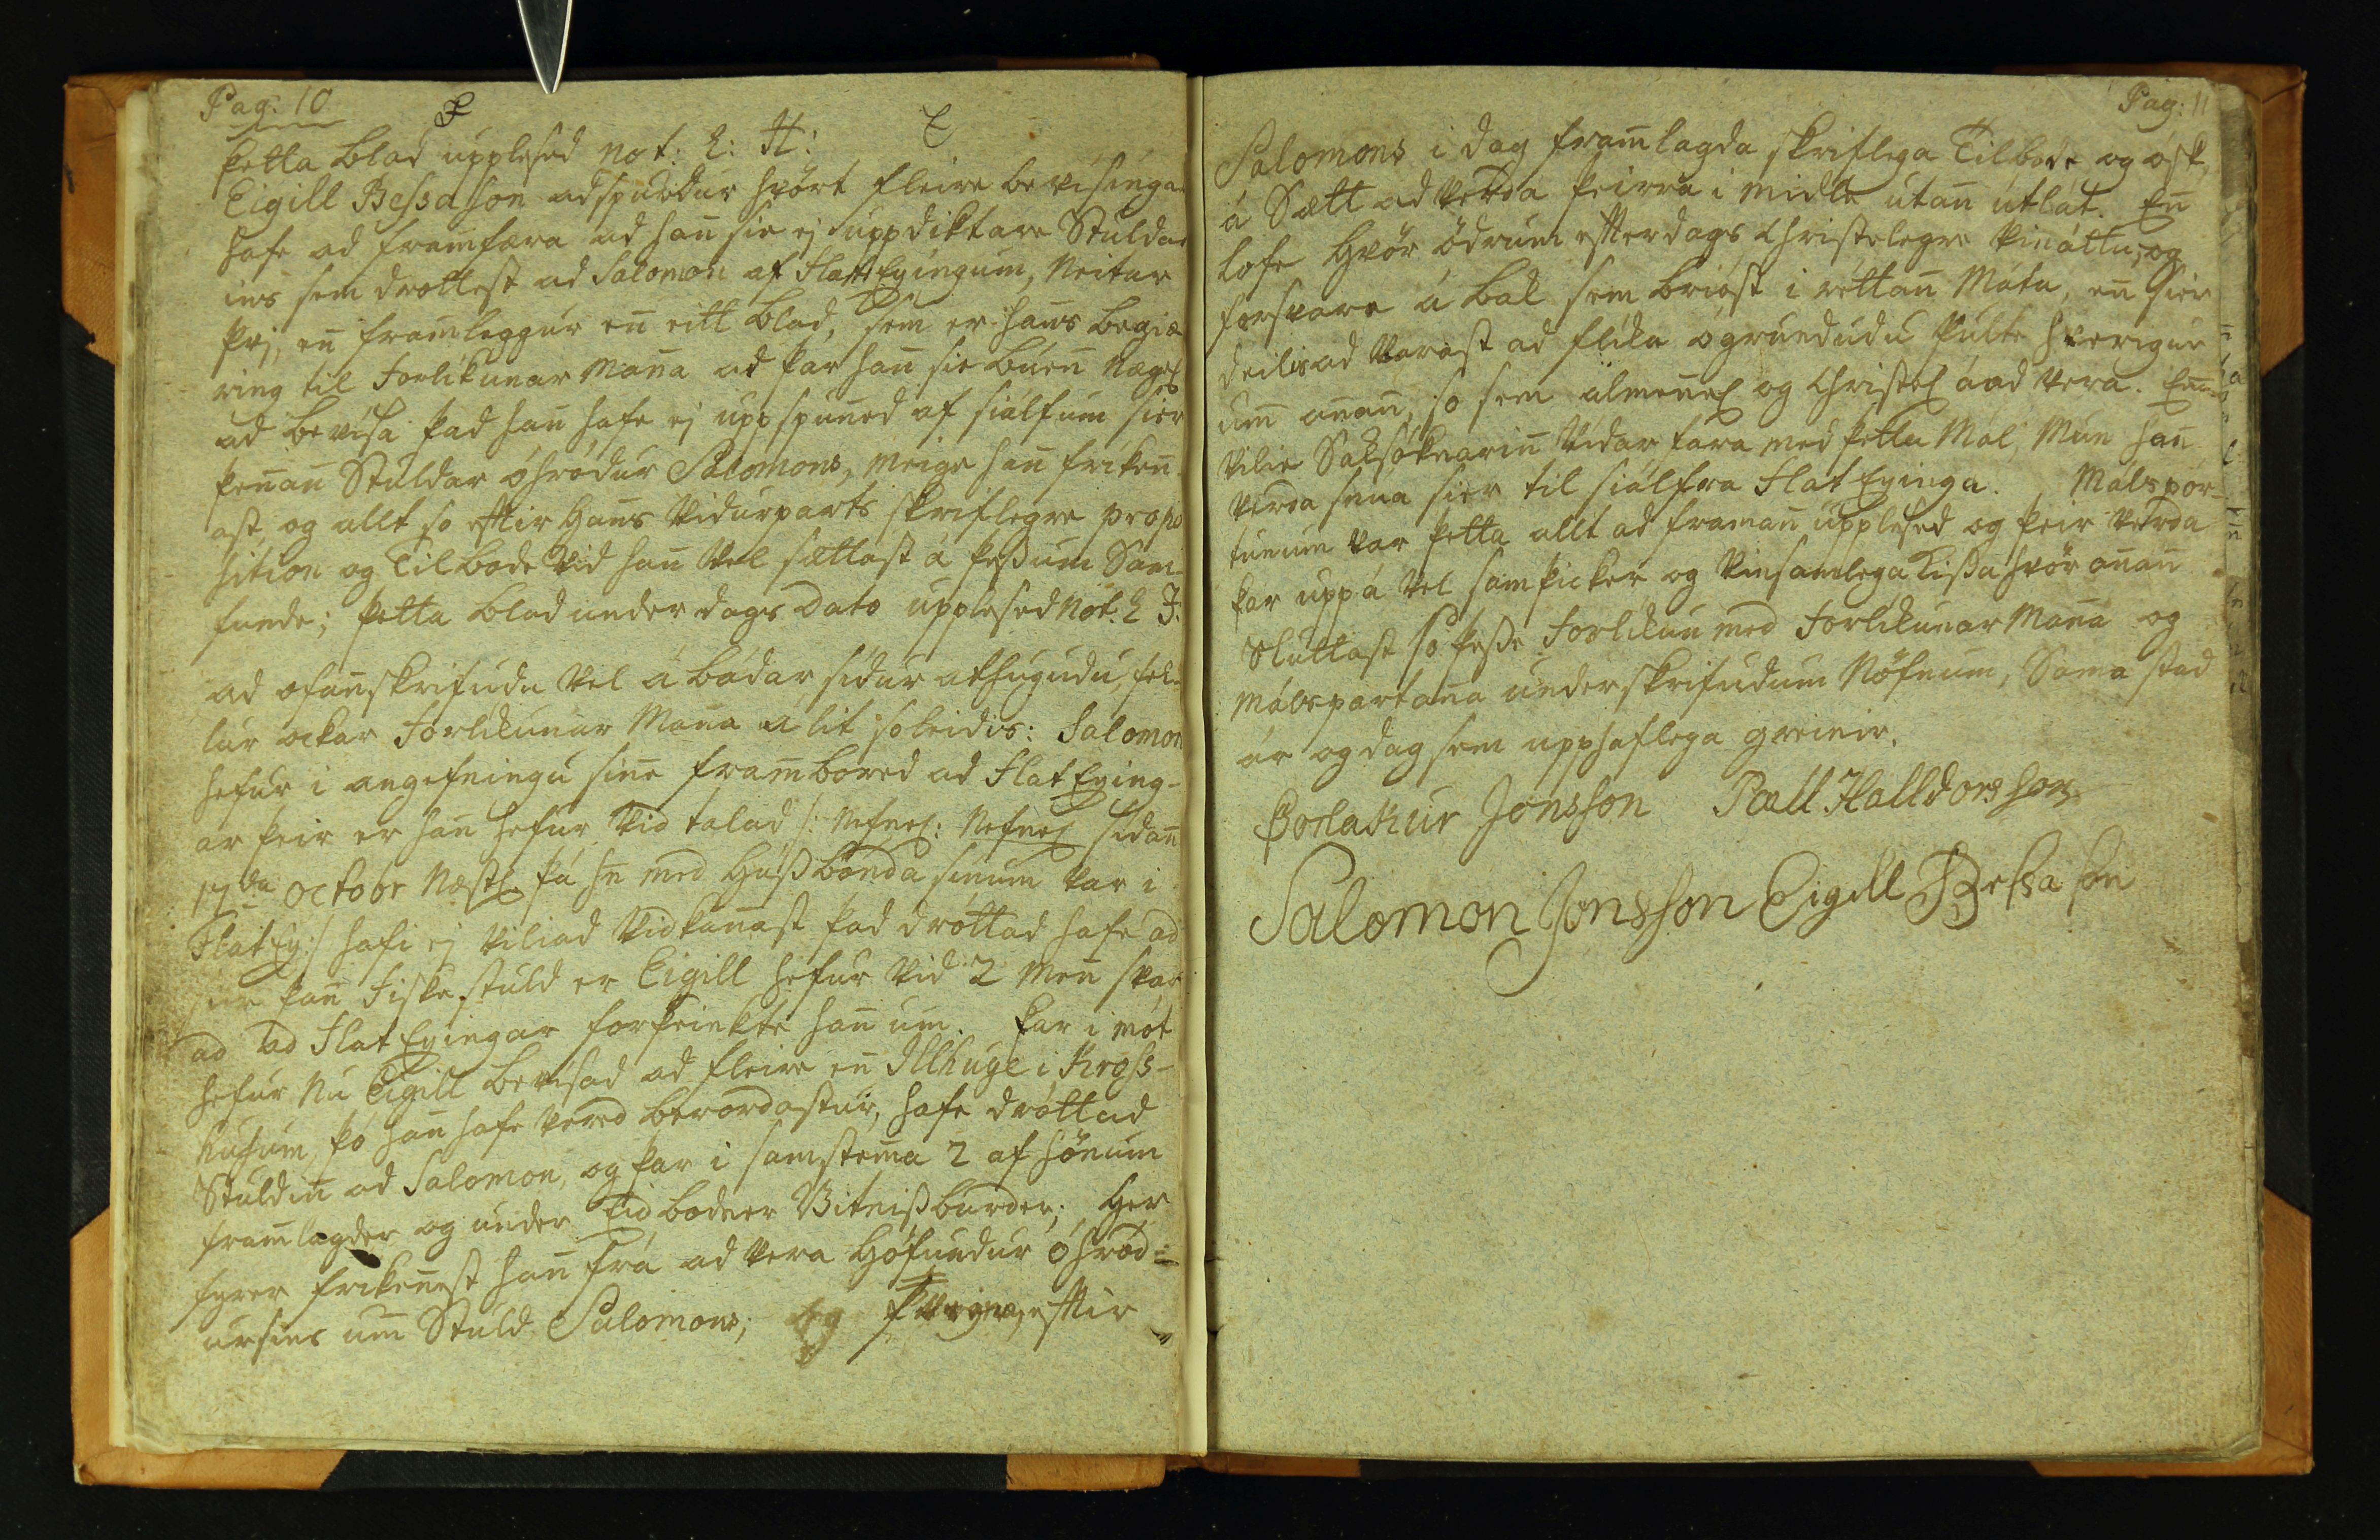 Pag: 10
þetta blad upplesed Not: L: H:
Eigill Bessason adspurdur hvört fleire bevísingar
hafe ad framfæra ad han̅ sie ej uppdiktare Stuldar
ins sem dróttest ad Salomon af FlatEyingum, Neitar
þvj, en̅ fram̅leggur en̅ eitt blad, sem er hans begiæ
ring til Forlikunar Man̅a ad þar han̅ sie búen̅
ad bevísa þad han̅ hafe ej uppspun̅ed af siálfum sier
þen̅an̅ Stuldar óhródur Salomons, meige han̅ fríken̅
ast, og allt so effter Hans Vidurparts skriflegre propo
sition og Tilbode vid han̅ Vel sættast á þessum Sam
funde; þetta blad under dags dato upplesed Not: L I:
ad ofan̅skrifudu Vel á bádar sídur athugudu, fel-
lur ockar Forlikunar Man̅a álit soleidis: Salomon
hefur i angefningu sin̅e fram̅bored ad FlatEying-
ar þeir er han̅ hefur Vid talad /: Nefnel: sídan̅
17da octobr Næstl þá hn̅ med Hússbónda sínum var i
FlatEy :/ hafi ej Viliad Vidkan̅ast þad dróttad hafe ad
sier þan̅ Fiskestuld er Eigill hefur Vid 2 Men̅ svar
ad ad FlatEyingar forþeinkte han̅ um. Þar i mót
hefur Nu Eigill bevísad ad fleire en̅ Illhuge i Kross-
húsum, þó han̅ hafe vered berordastur, hafe dróttad
Stuldin̅ ad Salomon, og þar i samstem̅a 2 af hönum
framlagder og under Eid bodner Vitnissburder; Her
fyrer fríken̅est han̅ frá ad vera Höfundur óhród-
ursins um Stuld Salomons; og effter
Pag: 11
Salomons i dag fram̅lagda skriflega Tilbode og ósk,
á Sætt ad verda þeirra i midle utan̅ útlát. En̅
lofe Hvör ödrum effterdags Christelegre Vináttu, og
forsvare á bak sem brióst i réttan̅ Máta, en̅ sier
deilis ad Varast ad flíka ógrundudu Hverigur
um an̅an̅, so sem almen̅el og Christel á ad vera. En̅
Vilie Saksóknarin̅ Vidar fara med þetta Mál, Mun han̅
verda snua sier til siálfra FlatEyinga. Málspör-
tunum var þetta allt ad framan̅ upplesed og þeir verda
þar uppá Vel samþicker og Vinsamlega kissa hvör an̅an̅
Sluttast so þesse Forlikun med Forlikunar Man̅a og
Málspartan̅a underskrifudum Nöfnum, Sama stad
ár og dag sem upphaflega greinir.
Þorlakur Jonsson Pall Halldorsson
Salomon Jonsson Eigill Bessason